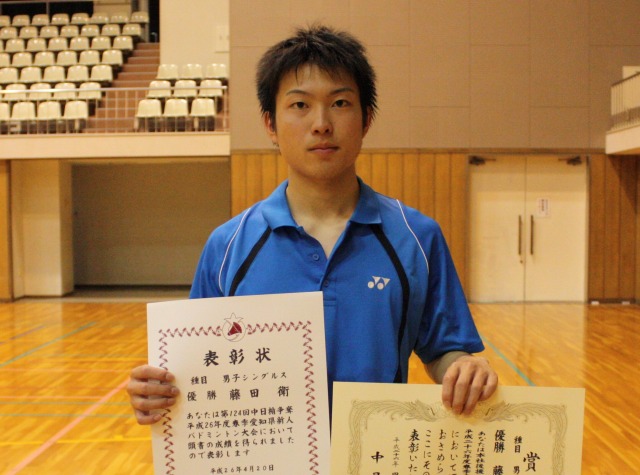 表彰状
種目 男子シングルス
優勝 藤田 衛
あなたは第124回中日旗争奪
平成26年度春季愛知県新人
バドミントン大会において
頭書の成績を得られました
ので表彰します
平成26年4月20日
賞
種目 男
優勝 藤
あなたは本社後援
平成二十六年度春季
において
おさめら
ここにその
表彰いた
平成二六
中
YONEX